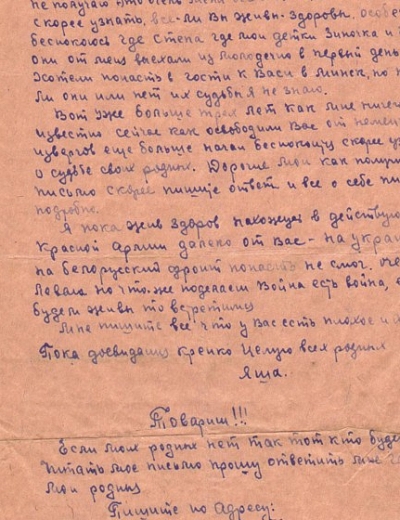 не получаю это очень меня
скорее узнать, все-ли Вы живы-здоровы. особе
беспокоюсь где Степа где мои детки Зиночка и
они от меня выехали из Молодечно в первый день
Хотели попасть в гости к Васи в Минск, но
ли они или нет их судьбы я не знаю.
Вот уже больше трех лет как мне ничего
известно сейчас как освободили Вас от немец
извергов еще больше начал беспокоится скорее уз
о судьбе своих родных. Дорогие мои как получи
письмо скорее пишите ответ и все о себе пи
подробно.
Я пока жив здоров нахожусь в действую
Красной Армии далеко от Вас - на украи
на белорусский фронт попасть не смог.
но что-же поделаем война есть война,
будем живы то встретимся
Мне пишите все что у Вас есть плохое и
Пока досвидания крепко целую всех родных
Яша.
Товарищ!!!
Если моих родных нет так тот кто буде
читать мое письмо прошу ответить мне
мои родные
Пишите по адресу: